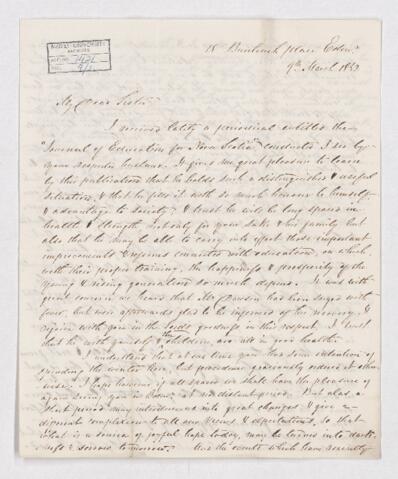 18 Buccleuch place Edinr
9th March 1859
My Dear Sister
I received lately a periodical entitled the
"Journal of Education for Nova Scotia" conducted I see by
your respected husband. It gives me great pleasure to learn
by this publication that he holds such a distinguished & useful
situation, & that he fills it with so much honour to himself,
& advantage to society. I trust he will be long spared in
health & strength not only for your sake & his family but
also that he may be able to carry into effect those important
improvements & reforms connected with education, on which,
with their proper training, the happiness & prosperity of the
young & rising generation so much depend. It was with
great concern we heard that Mr Dawson had been seized with
fever, but were afterwards glad to be informed of his recovery, &
rejoice with you in the Lord's goodness in this respect. I trust
that he with yourself & children, are all in good health.
I understand that at one time you had some intention of
spending the winter here, but providence graciously ordered it other
wise. I hope however if all spared we shall have the pleasure of
again seeing you in at no distant period. But alas a
short period may introduce us into great changes & give a
different complexion to all our views & expectations, so that
what is a source of joyful hope today, may be turned into dark
& sorrow tomorrow. the events which have recently